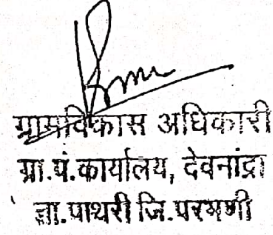 ग्रामविकास अधिकारी
ग्रा.पं.कार्यालय, देवनांद्रा
ता.पाथरी जि.परभणी